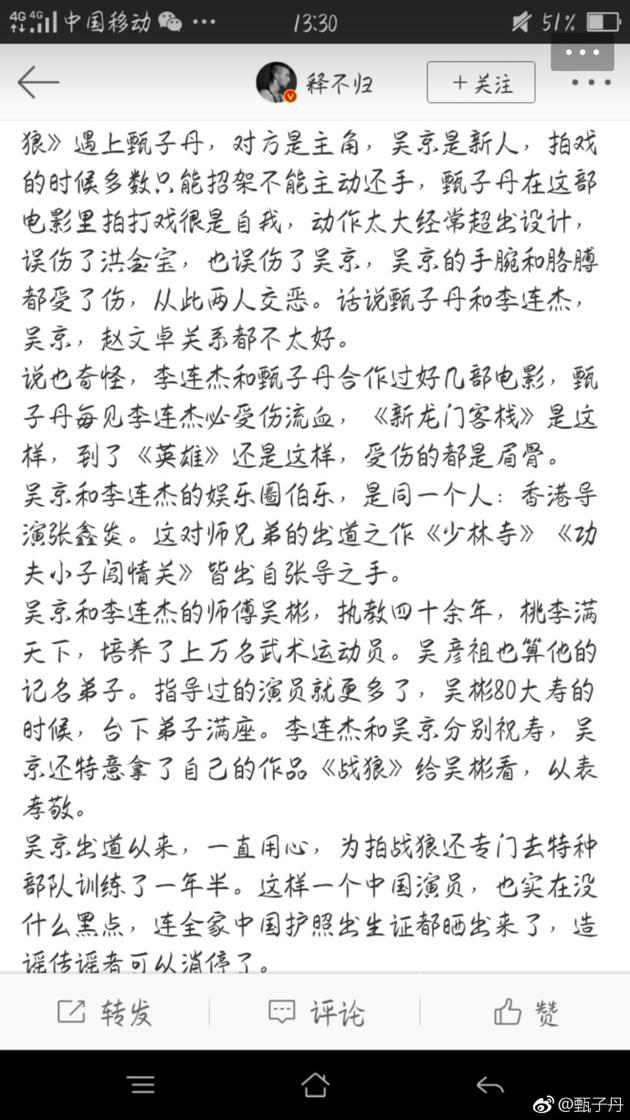 4G 4G 中国移动 ··· 13:30 51%
释不归 +关注
狼》遇上甄子丹，对方是主角，吴京是新人，拍戏
的时候多数只能招架不能主动还手，甄子丹在这部
电影里拍打戏很是自我，动作太大经常超出设计，
误伤了洪金宝，也误伤了吴京，吴京的手腕和胳膊
都受了伤，从此两人交恶。话说甄子丹和李连杰，
吴京，赵文卓关系都不太好。
说也奇怪，李连杰和甄子丹合作过好几部电影，甄
子丹每见李连杰必受伤流血，《新龙门客栈》是这
样，到了《英雄》还是这样，受伤的都是眉骨。
吴京和李连杰的娱乐圈伯乐，是同一个人：香港导
演张鑫炎。这对师兄弟的出道之作《少林寺》《功
夫小子闯情关》皆出自张导之手。
吴京和李连杰的师傅吴彬，执教四十余年，桃李满
天下，培养了上万名武术运动员。吴彦祖也算他的
记名弟子。指导过的演员就更多了，吴彬80大寿的
时候，台下弟子满座。李连杰和吴京分别祝寿，吴
京还特意拿了自己的作品《战狼》给吴彬看，以表
孝敬。
吴京出道以来，一直用心，为拍战狼还专门去特种
部队训练了一年半。这样一个中国演员，也实在没
什么黑点，连全家中国护照出生证都晒出来了，造
谣传谣者可以消停了。
转发 评论 赞
@甄子丹